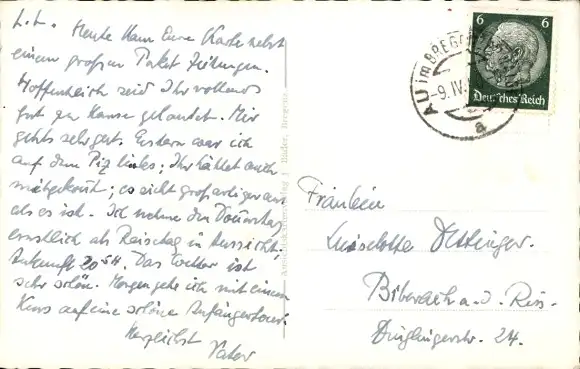 L. L. Heute kam Eure Karte nebst
einem großen Paket Zeitungen.
Hoffentlich seid Ihr vollends
gut zu Hause gelandet. Mir
gehts sehr gut. Gestern war ich
auf dem Piz links; Ihr hättet auch
mitgekonnt; es sieht großartiger aus
als es ist. Ich nehme den Donnerstag
ernstlich als Reisetag in Aussicht;
Ankunft 20 54. Das Wetter ist
sehr schön. Morgen gehe ich mit einem
Kurs auf eine schöne Anfängertour.
Herzlichst
Vater
6 6
Deutsches Reich
AU im BREGENZ
-9. IV.
a
Fräulein
Lieselotte Dettinger.
Biberach a. d. Riss.
Dinglingerstr. 24.